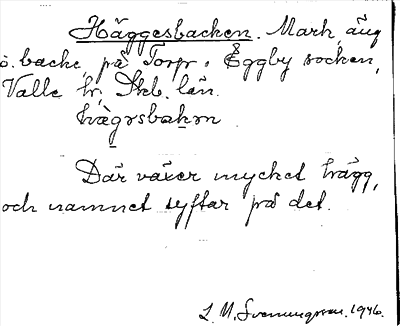 Häggesbacken. Mark, äng
o. backe, på Torp i Eggby socken,
Valle hr, Skb. län.
hægəsbakən
Där växer mycket hägg,
och namnet syftar på det.
L. M. Svenungsson. 1946.